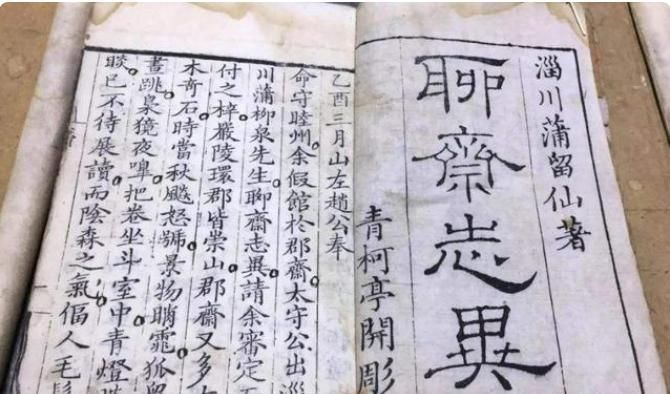 淄川蒲留仙著
聊齋志異
青柯亭開彫
乙酉三月山左趙公奉
命守睦州余假館於郡齋太守公出淄
川蒲柳泉先生聊齋志異請余審定
付之梓嚴陵環郡皆崇山郡齋又多
木奇石時當秋飈怒號景物睄窱狐
晝跳梟獍夜嘷把卷坐斗室中青燈
睒已不待展讀而陰森之氣偪人毛